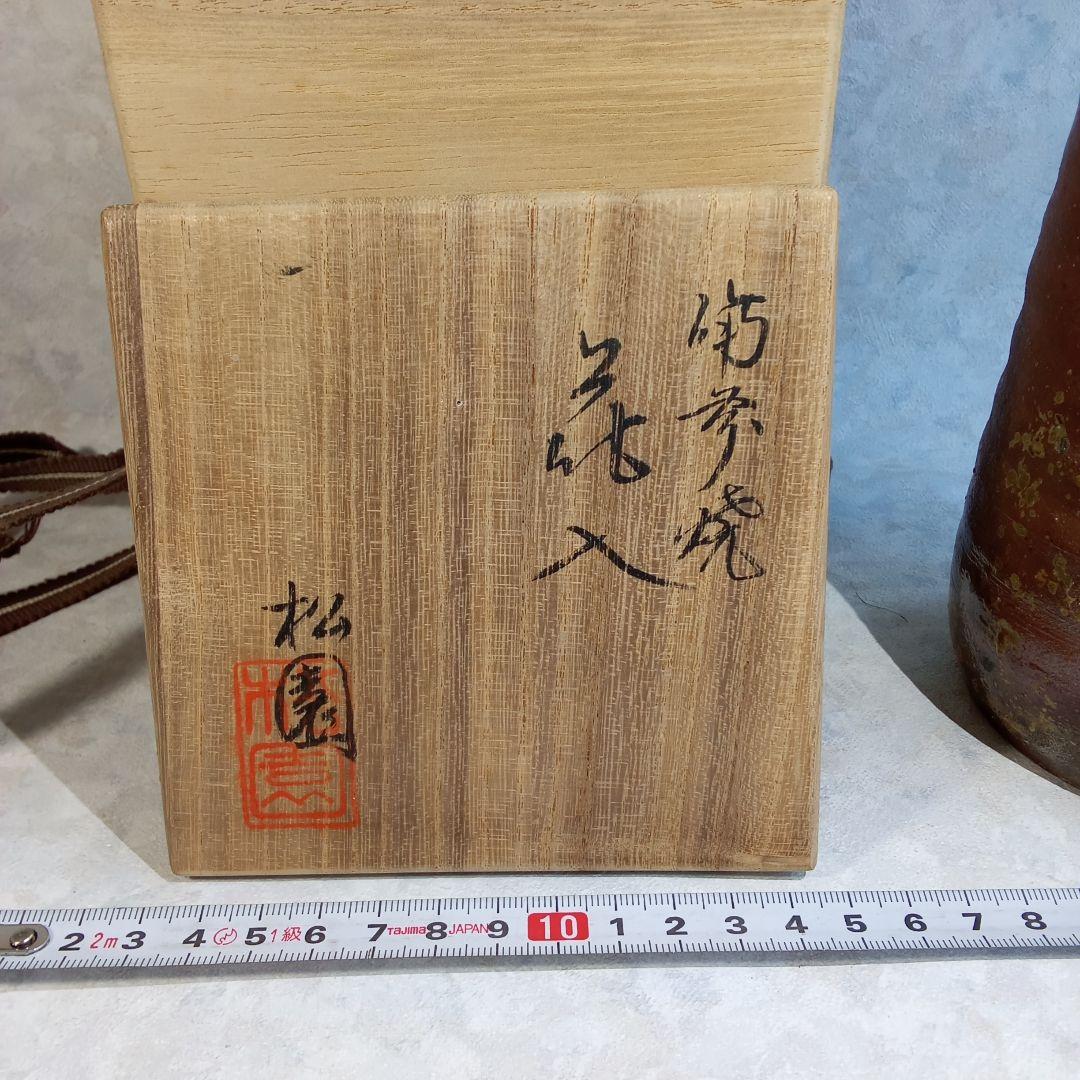 備前焼
花入
松園
松園
2 2m 3 4 5 1級 6 7 Tajima 8 JAPAN 9 10 1 2 3 4 5 6 7 8